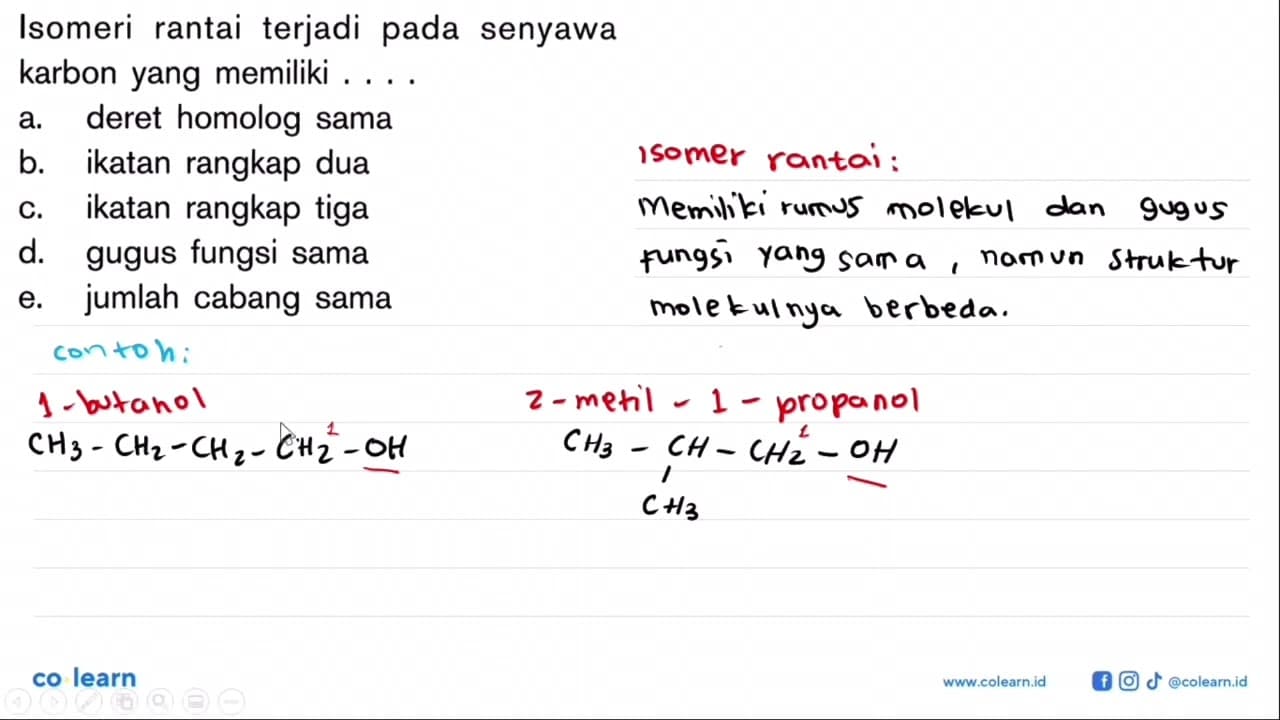 Isomeri rantai terjadi pada senyawa
karbon yang memiliki . . . .
a. deret homolog sama
b. ikatan rangkap dua
c. ikatan rangkap tiga
d. gugus fungsi sama
e. jumlah cabang sama
Isomer rantai :
Memiliki rumus molekul dan gugus
fungsi yang sama , namun struktur
molekulnya berbeda.
contoh :
1-butanol
CH3 - CH2 - CH2 - CH2 1 - OH
2 - metil - 1 - propanol
CH3 - CH - CH2 1 - OH
CH3
co learn
www.colearn.id
@colearn.id